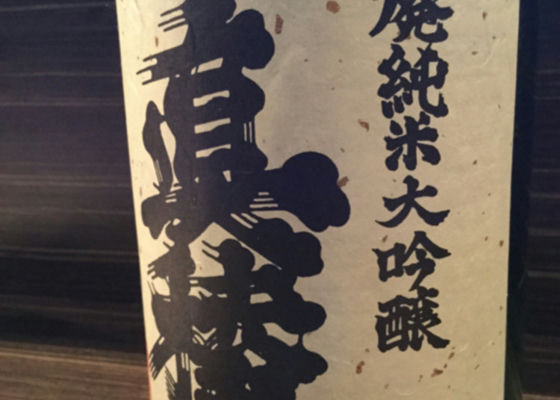 廃純米大吟醸
真